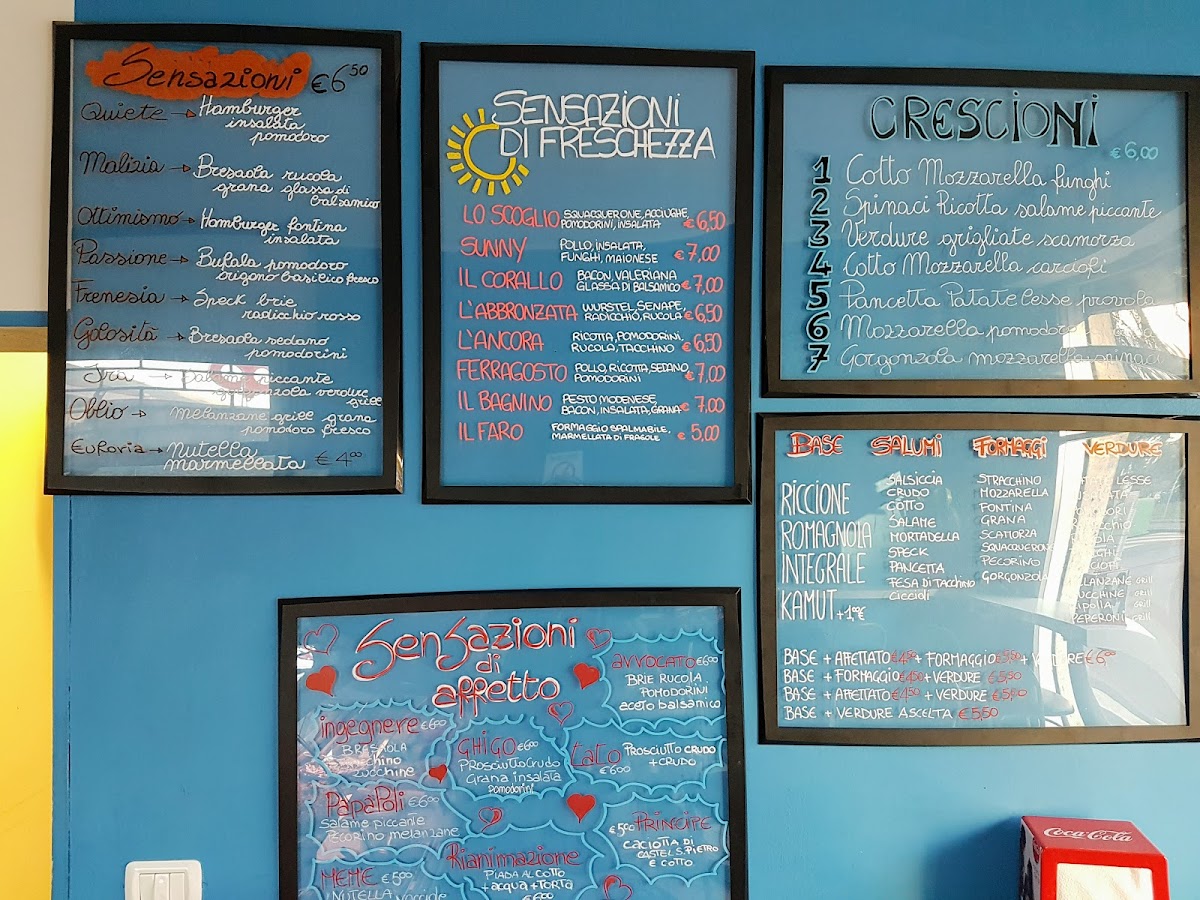 Sensazioni €6⁵⁰
Quiete → Hamburger
insalata
pomodoro
Malizia → Bresaola rucola
grana glassa di
balsamico
Ottimismo → Hamburger fontina
insalata
Passione → Bufala pomodoro
origano basilico fresco
Frenesia → Speck brie
radicchio rosso
Golosità → Bresaola sedano
pomodorini
Ira → Salame piccante
gorgonzola verdure
grill
Oblio → Melanzane grill grana
pomodoro fresco
Euforia → Nutella
marmellata €4⁰⁰
SENSAZIONI
DI FRESCHEZZA
LO SCOGLIO SQUACQUERONE, ACCIUGHE,
POMODORINI, INSALATA € 6,50
SUNNY POLLO, INSALATA,
FUNGHI, MAIONESE € 7,00
IL CORALLO BACON, VALERIANA
GLASSA DI BALSAMICO € 7,00
L'ABBRONZATA WURSTEL, SENAPE,
RADICCHIO, RUCOLA € 6,50
L'ANCORA RICOTTA, POMODORINI,
RUCOLA, TACCHINO € 6,50
FERRAGOSTO POLLO, RICOTTA, SEDANO,
POMODORINI € 7,00
IL BAGNINO PESTO MODENESE,
BACON, INSALATA, GRANA € 7,00
IL FARO FORMAGGIO SPALMABILE,
MARMELLATA DI FRAGOLE € 5,00
CRESCIONI
€ 6,00
1 Cotto Mozzarella funghi
2 Spinaci Ricotta salame piccante
3 Verdure grigliate scamorza
4 Cotto Mozzarella carciofi
5 Pancetta Patate lesse provola
6 Mozzarella pomodoro
7 Gorgonzola mozzarella spinaci
BASE SALUMI FORMAGGI VERDURE
RICCIONE
ROMAGNOLA
INTEGRALE
KAMUT +1,00€
SALSICCIA
CRUDO
COTTO
SALAME
MORTADELLA
SPECK
PANCETTA
FESA DI TACCHINO
CICCIOLI
STRACCHINO
MOZZARELLA
FONTINA
GRANA
SCAMORZA
SQUACQUERONE
PECORINO
GORGONZOLA
LESSE
GRILL
GRILL
CIPOLLA GRILL
PEPERONI GRILL
BASE + AFFETTATO €4⁵⁰ + FORMAGGIO €5⁵⁰ + VERDURE €6⁰⁰
BASE + FORMAGGIO €4⁵⁰ + VERDURE €5,50
BASE + AFFETTATO €4⁵⁰ + VERDURE €5,50
BASE + VERDURE A SCELTA €5,50
Sensazioni
di
affetto
AVVOCATO €6⁰⁰
BRIE RUCOLA
POMODORINI
aceto balsamico
ingegnere €6⁰⁰
BRESAOLA
ZUCCHINE
GHIGO €6⁰⁰
PROSCIUTTO CRUDO
Grana insalata
Pomodorini
TATO €6⁰⁰
PROSCIUTTO CRUDO
+ CRUDO
PAPÀPOLI €6⁰⁰
Salame piccante
Pecorino melanzane
€5⁰⁰ PRINCIPE
CACIOTTA DI
CASTEL S. PIETRO
E COTTO
Rianimazione
PIADA AL COTTO
+ acqua + TORTA
€6⁰⁰
MEME €5⁰⁰
NUTELLA
Coca-Cola